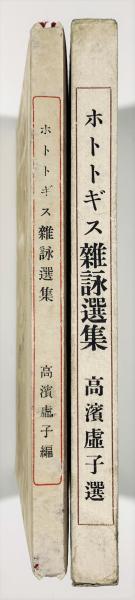 ホトトギス雜詠選集 高濱虛子選
ホトトギス雜詠選集 高濱虛子編